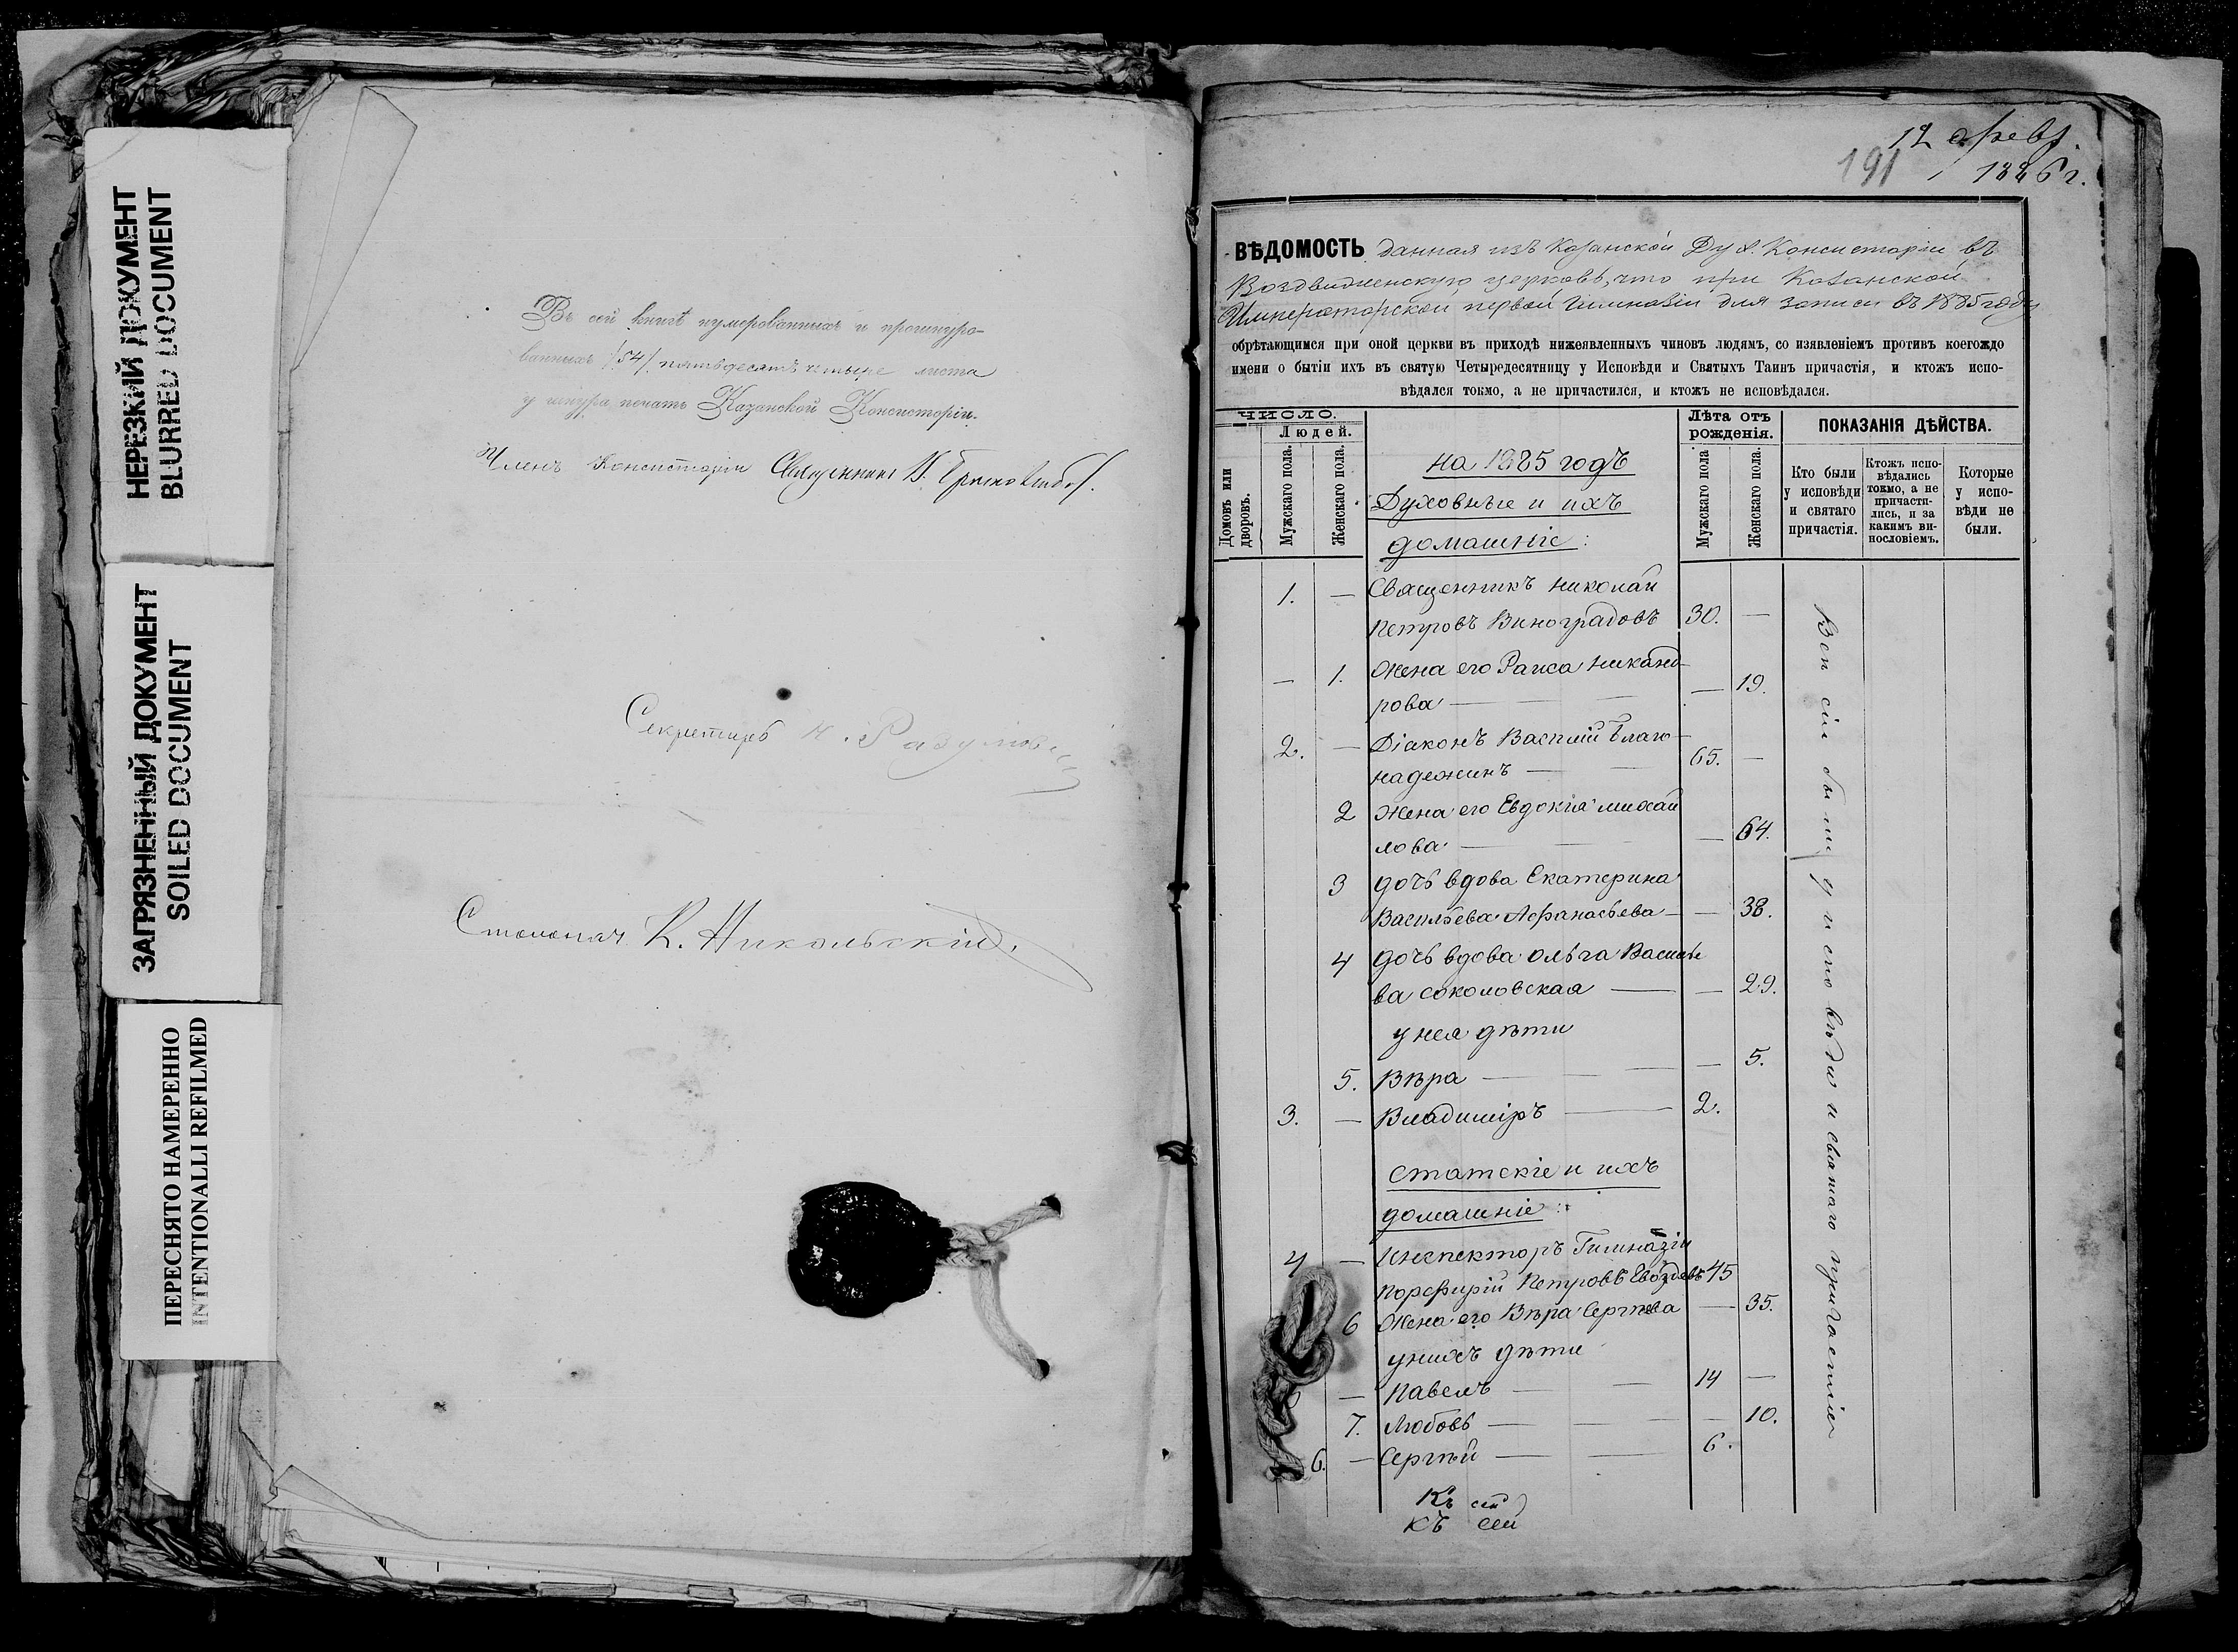 НЕРЕЗКИЙ ДОКУМЕНТ
BLURRED DOCUMENT
ЗАГРЯЗНЕННЫЙ ДОКУМЕНТ
SOILED DOCUMENT
ПЕРЕСНЯТО НАМЕРЕННО
INTENTIONALLI REFILMED
Въ сей книгѣ нумерованныхъ и прошнуро-
ванныхъ /54/ пятьдесятъ четыре листа
у шнура печать Казанской Консисторіи.
Членъ Консисторіи Священникъ
Секретарь Н. Разумов
Столонач. К. Никольскій.
12 февр.
191 1886 г.
ВѢДОМОСТЬ данная изъ Казанской Дух. Консисторіи въ
Воздвиженскую церковь, что при Казанской
Императорской первой Гимназіи для записи въ 1885 году
обрѣтающимся при оной церкви въ приходѣ нижеявленныхъ чиновъ людямъ, со изявленіемъ противъ коегождо
имени о бытіи ихъ въ святую Четыредесятницу у Исповѣди и Святыхъ Таинъ причастія, и ктожъ испо-
вѣдался токмо, а не причастился, и ктожъ не исповѣдался.
ЧИСЛО.
Домовъ или дворовъ.
Людей.
Мужскаго пола.
Женскаго пола.
на 1885 годъ
Духовные и ихъ
домашніе:
Лѣта отъ рожденія.
Мужскаго пола
Женскаго пола.
ПОКАЗАНІЯ ДѢЙСТВА.
Кто были у исповѣди и святаго причастія.
Ктожъ испо-вѣдались токмо, а не причасти-лись, и за какимъ ви-нословіемъ.
Которые у испо-вѣди не были.
1. — Священникъ Николай
Петровъ Виноградовъ 30. —
— 1. Жена его Раиса Никанд-
рова — — 19.
2. — Діаконъ Василій Благо-
надежинъ — 65. —
2 Жена его Евдокія Михай
лова — — 64.
3 дочь вдова Екатерина
Васильева Афанасьева — — 38.
4 дочь вдова Ольга Василье
ва Соколовская — — 29.
у нея дѣти
5. Вѣра — — 5.
3. — Владиміръ — 2.
Статскіе и ихъ
домашніе:
4 — Инспекторъ Гимназіи
Порфирій Петровъ 45
6 Жена его Вѣра Сергѣева — 35.
у нихъ дѣти
— Павелъ — 14 —
7. Любовь — — 10.
6. — Сергѣй — 6.
Къ сей
Къ сей
Вси сіи были у исповѣди и святаго причастія